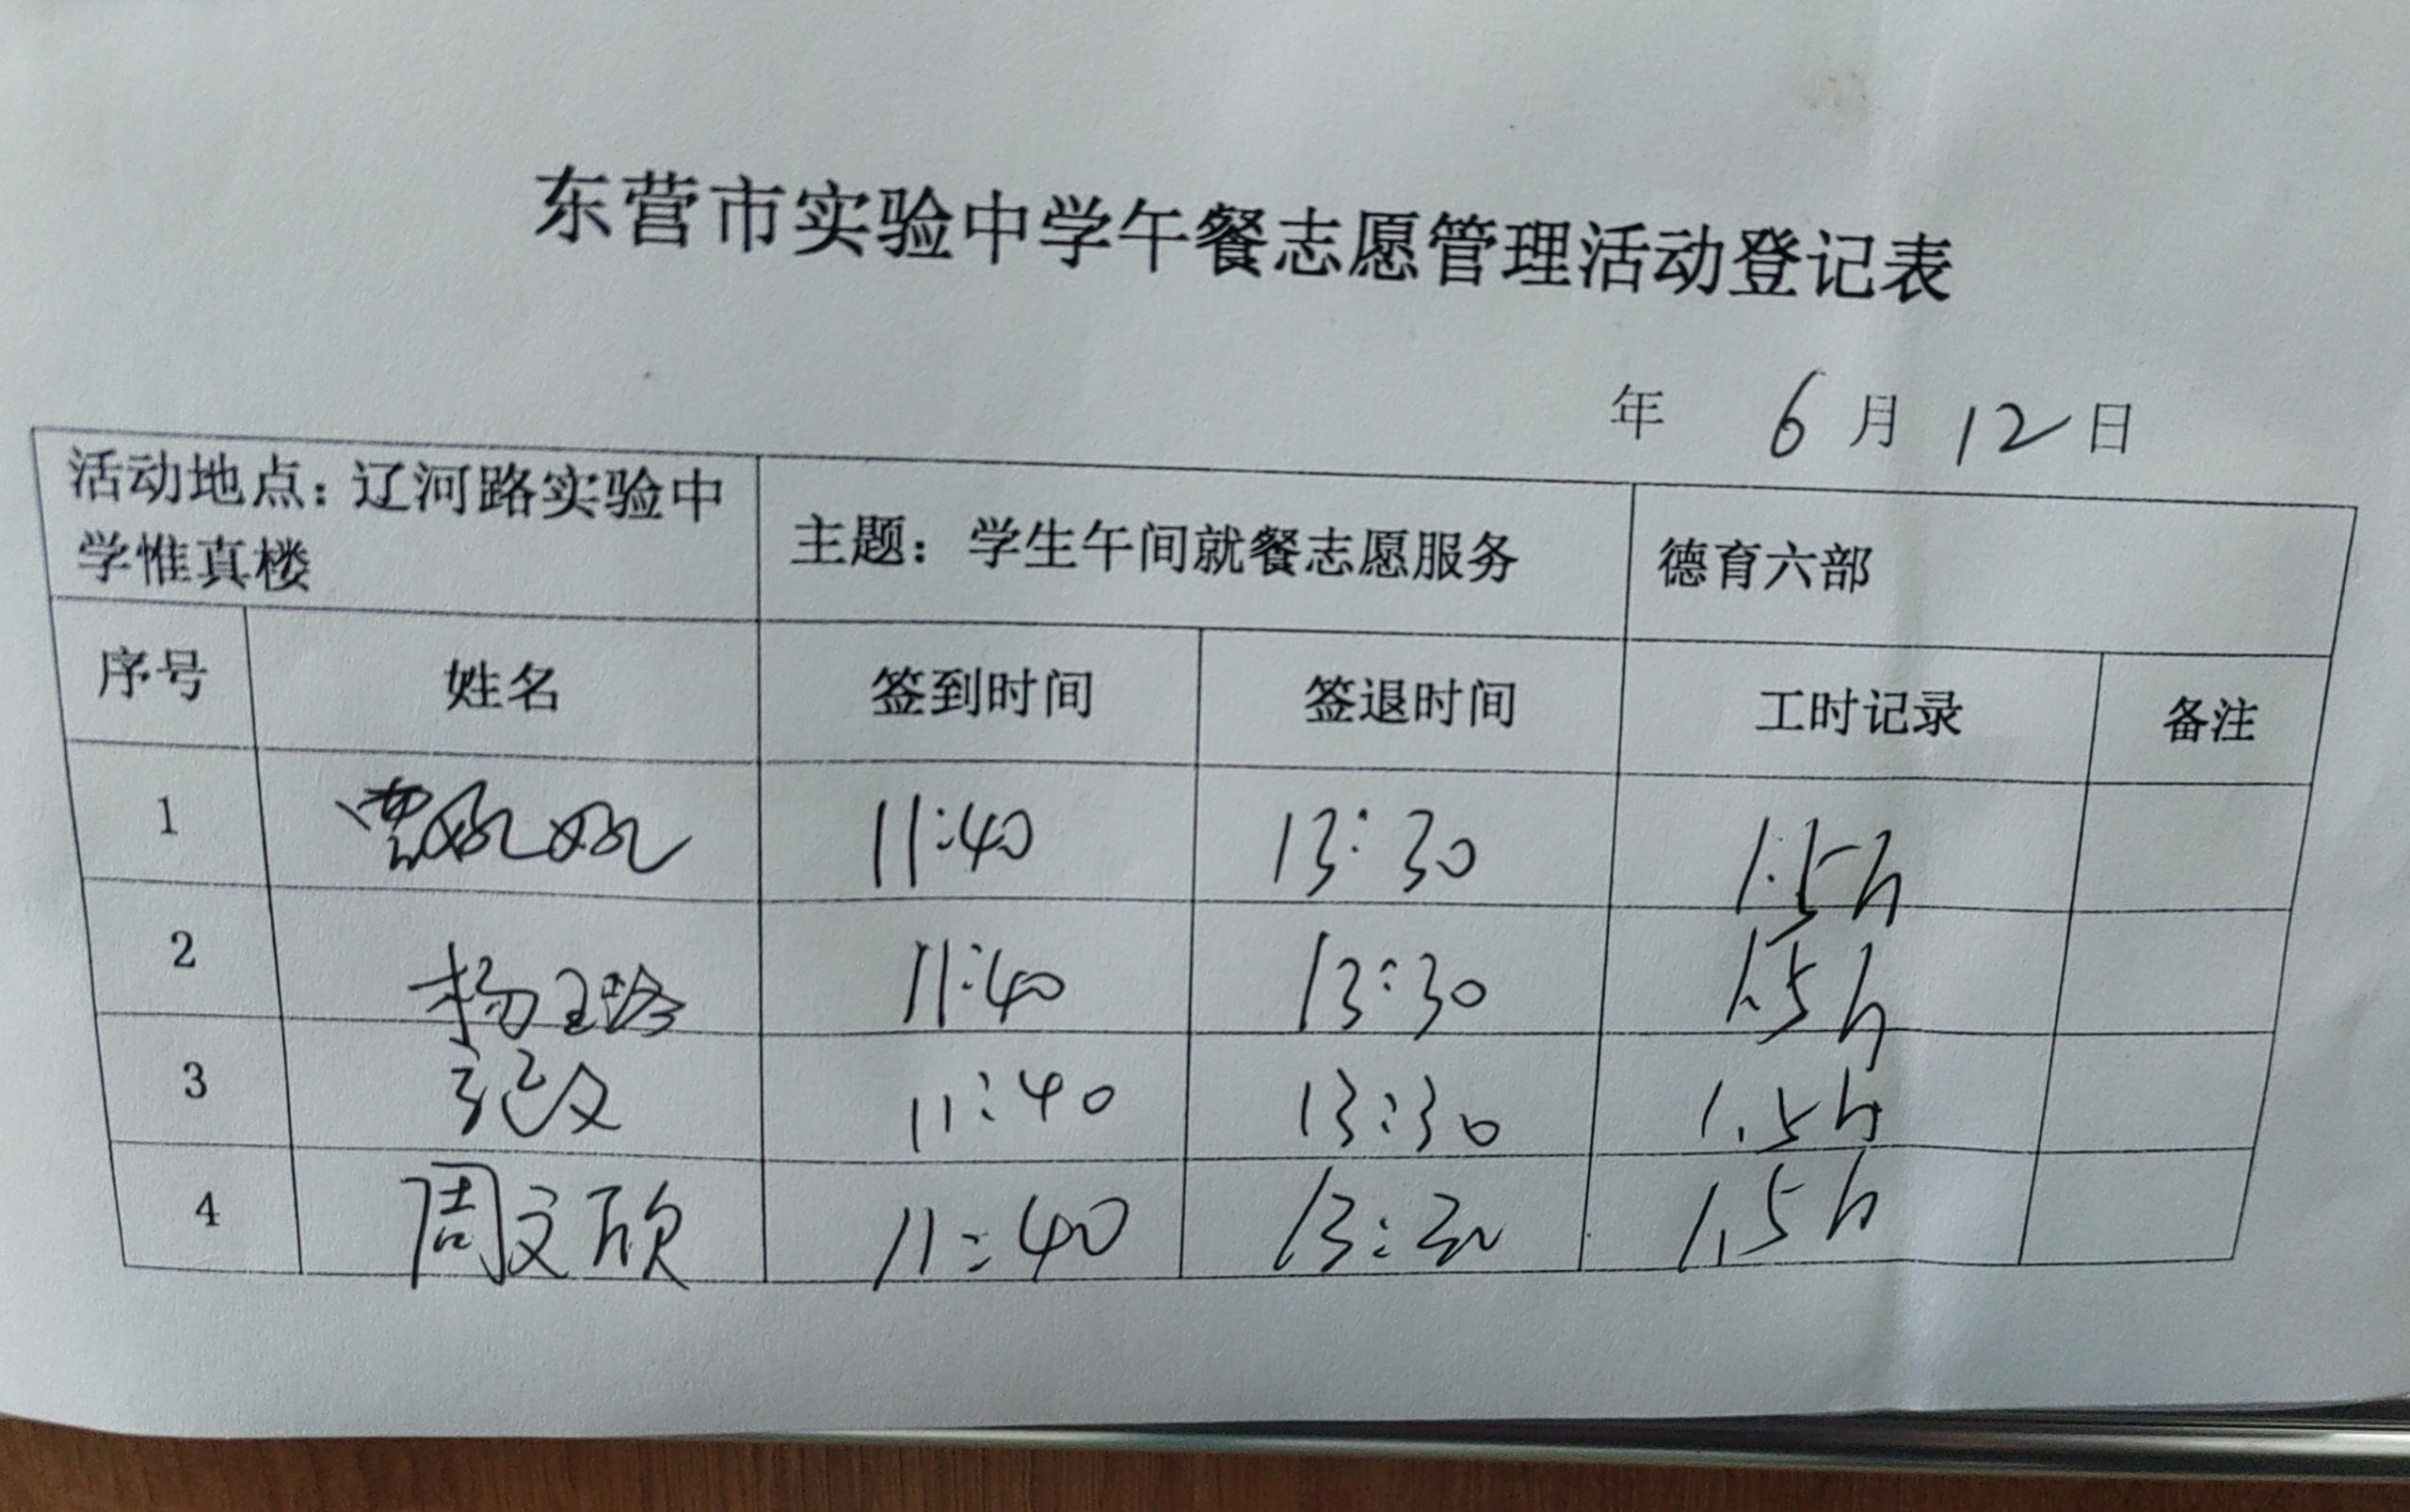 东营市实验中学午餐志愿管理活动登记表
年 6月12日
活动地点：辽河路实验中
学惟真楼
主题：学生午间就餐志愿服务
德育六部
序号 姓名 签到时间 签退时间 工时记录 备注
1 11:40 13:30 1.5h
2 杨 11:40 13:30 1.5h
3 11:40 13:30 1.5h
4 周文欣 11:40 13:30 1.5h